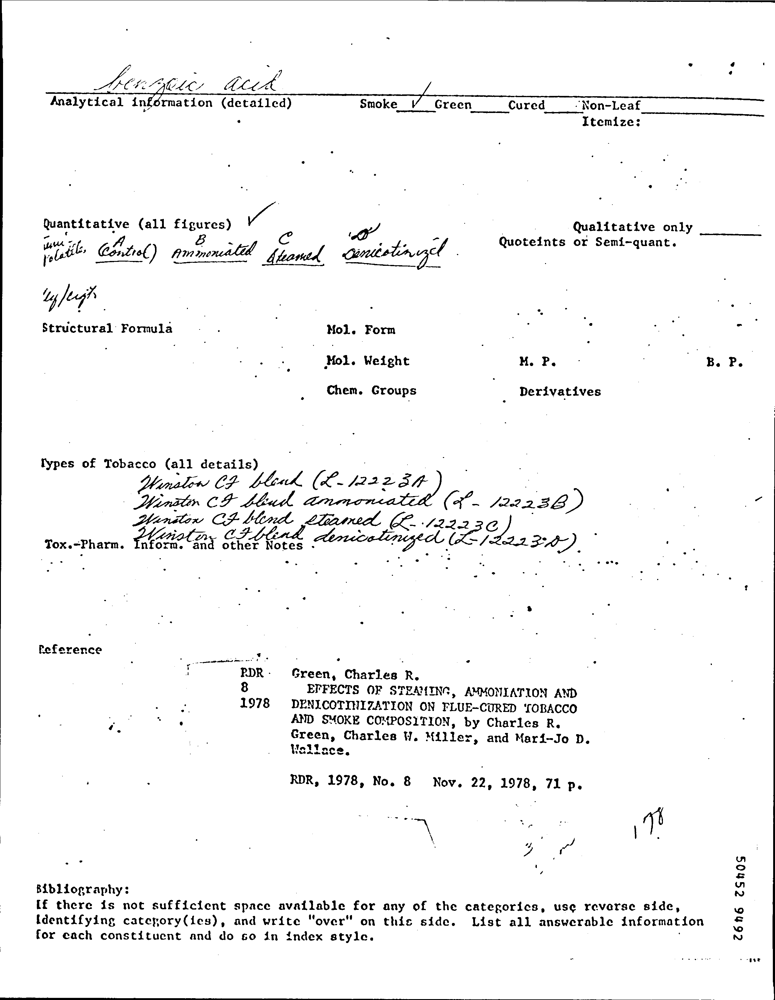 benzoic acid
Analytical information (detailed) Smoke ✓ Green Cured Non-Leaf
Itemize:
Quantitative (all figures) ✓ Qualitative only
Quoteints or Semi-quant.
A B C D
(Control) Ammoniated Steamed Denicotinized
Structural Formula Mol. Form
Mol. Weight M. P. B. P.
Chem. Groups Derivatives
Types of Tobacco (all details)
Winston CF blend (L-12223A)
Winston CF blend ammoniated (L-12223B)
Winston CF blend steamed (L-12223C)
Winston CF blend denicotinized (L-12223-D)
Tox.-Pharm. Inform. and other Notes
Reference
RDR Green, Charles R.
8 EFFECTS OF STEAMING, AMMONIATION AND
1978 DENICOTINIZATION ON FLUE-CURED TOBACCO
AND SMOKE COMPOSITION, by Charles R.
Green, Charles W. Miller, and Mari-Jo D.
Wallace.
RDR, 1978, No. 8 Nov. 22, 1978, 71 p.
178
Bibliography:
If there is not sufficient space available for any of the categories, use reverse side,
Identifying category(ies), and write "over" on this side. List all answerable information
for each constituent and do so in index style.
50452 9492